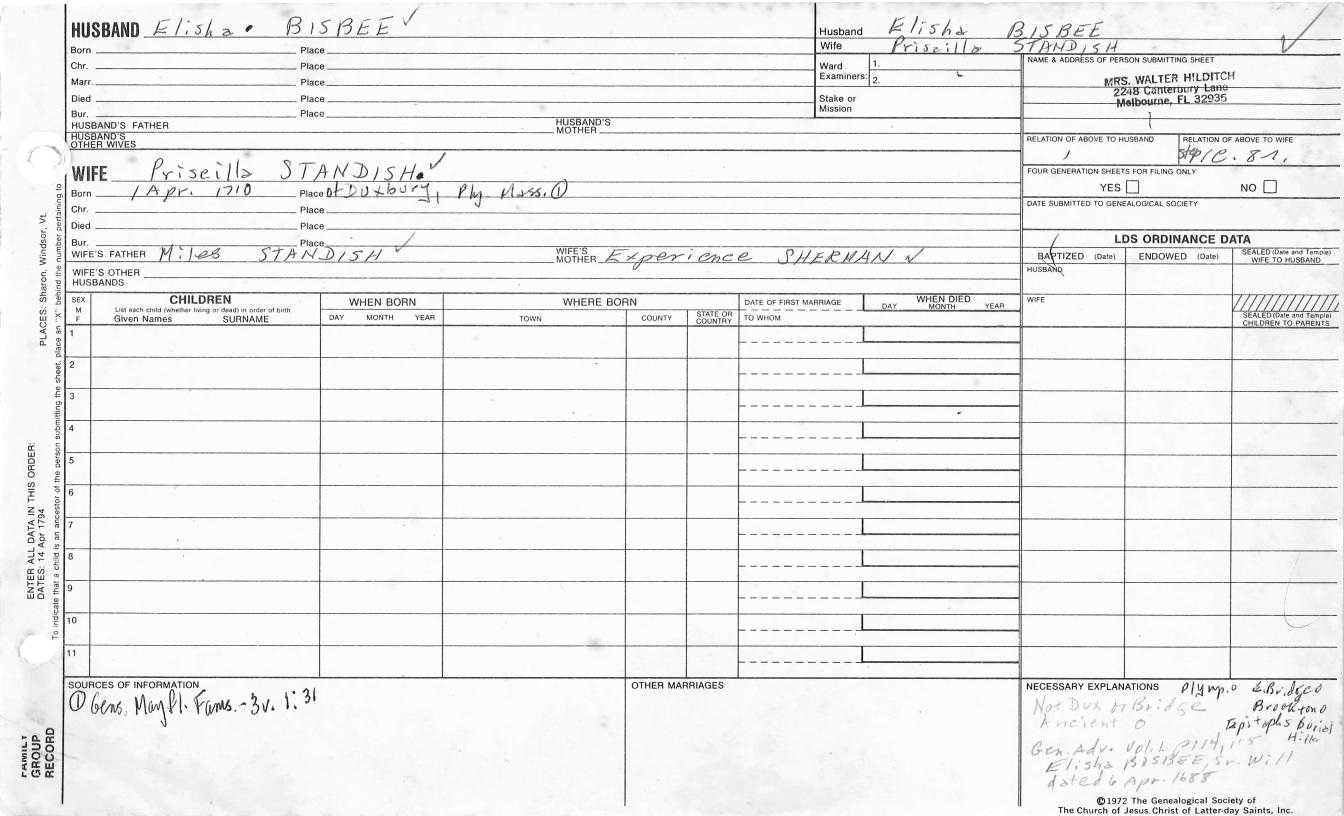 HUSBAND Elisha BISBEE ✓
Born Place
Chr. Place
Marr. Place
Died Place
Bur. Place
HUSBAND'S FATHER HUSBAND'S MOTHER
HUSBAND'S OTHER WIVES
Husband Elisha BISBEE
Wife Priscilla STANDISH ✓
Ward Examiners: 1.
2.
Stake or Mission
NAME & ADDRESS OF PERSON SUBMITTING SHEET
MRS. WALTER HILDITCH
2248 Canterbury Lane
Melbourne, FL 32935
RELATION OF ABOVE TO HUSBAND RELATION OF ABOVE TO WIFE
FOUR GENERATION SHEETS FOR FILING ONLY
YES NO
DATE SUBMITTED TO GENEALOGICAL SOCIETY
WIFE Priscilla STANDISH ✓
Born 1 Apr. 1710 Place of Duxbury, Ply. Mass. ①
Chr. Place
Died Place
Bur. Place
WIFE'S FATHER Miles STANDISH ✓ WIFE'S MOTHER Experience SHERMAN ✓
WIFE'S OTHER HUSBANDS
LDS ORDINANCE DATA
BAPTIZED (Date) ENDOWED (Date) SEALED (Date and Temple) WIFE TO HUSBAND
HUSBAND
WIFE
SEALED (Date and Temple) CHILDREN TO PARENTS
SEX M F
CHILDREN
List each child (whether living or dead) in order of birth
Given Names SURNAME
WHEN BORN
DAY MONTH YEAR
WHERE BORN
TOWN COUNTY STATE OR COUNTRY
DATE OF FIRST MARRIAGE
TO WHOM
WHEN DIED
DAY MONTH YEAR
1
2
3
4
5
6
7
8
9
10
11
SOURCES OF INFORMATION
① Gens. Mayfl. Fams. - 3v. 1: 31
OTHER MARRIAGES
NECESSARY EXPLANATIONS
Plymp. o E. Bridge o
Not Dux or Bridge Brockton o
Ancient o Epitaphs Burial
Hill
Gen. Adv. Vol. 1
Elisha BISBEE, Sr. Will
dated 6 Apr. 1688
©1972 The Genealogical Society of
The Church of Jesus Christ of Latter-day Saints, Inc.
ENTER ALL DATA IN THIS ORDER:
DATES: 14 Apr 1794 PLACES: Sharon, Windsor, Vt.
To indicate that a child is an ancestor of the person submitting the sheet, place an "X" behind the number pertaining to
FAMILY
GROUP
RECORD